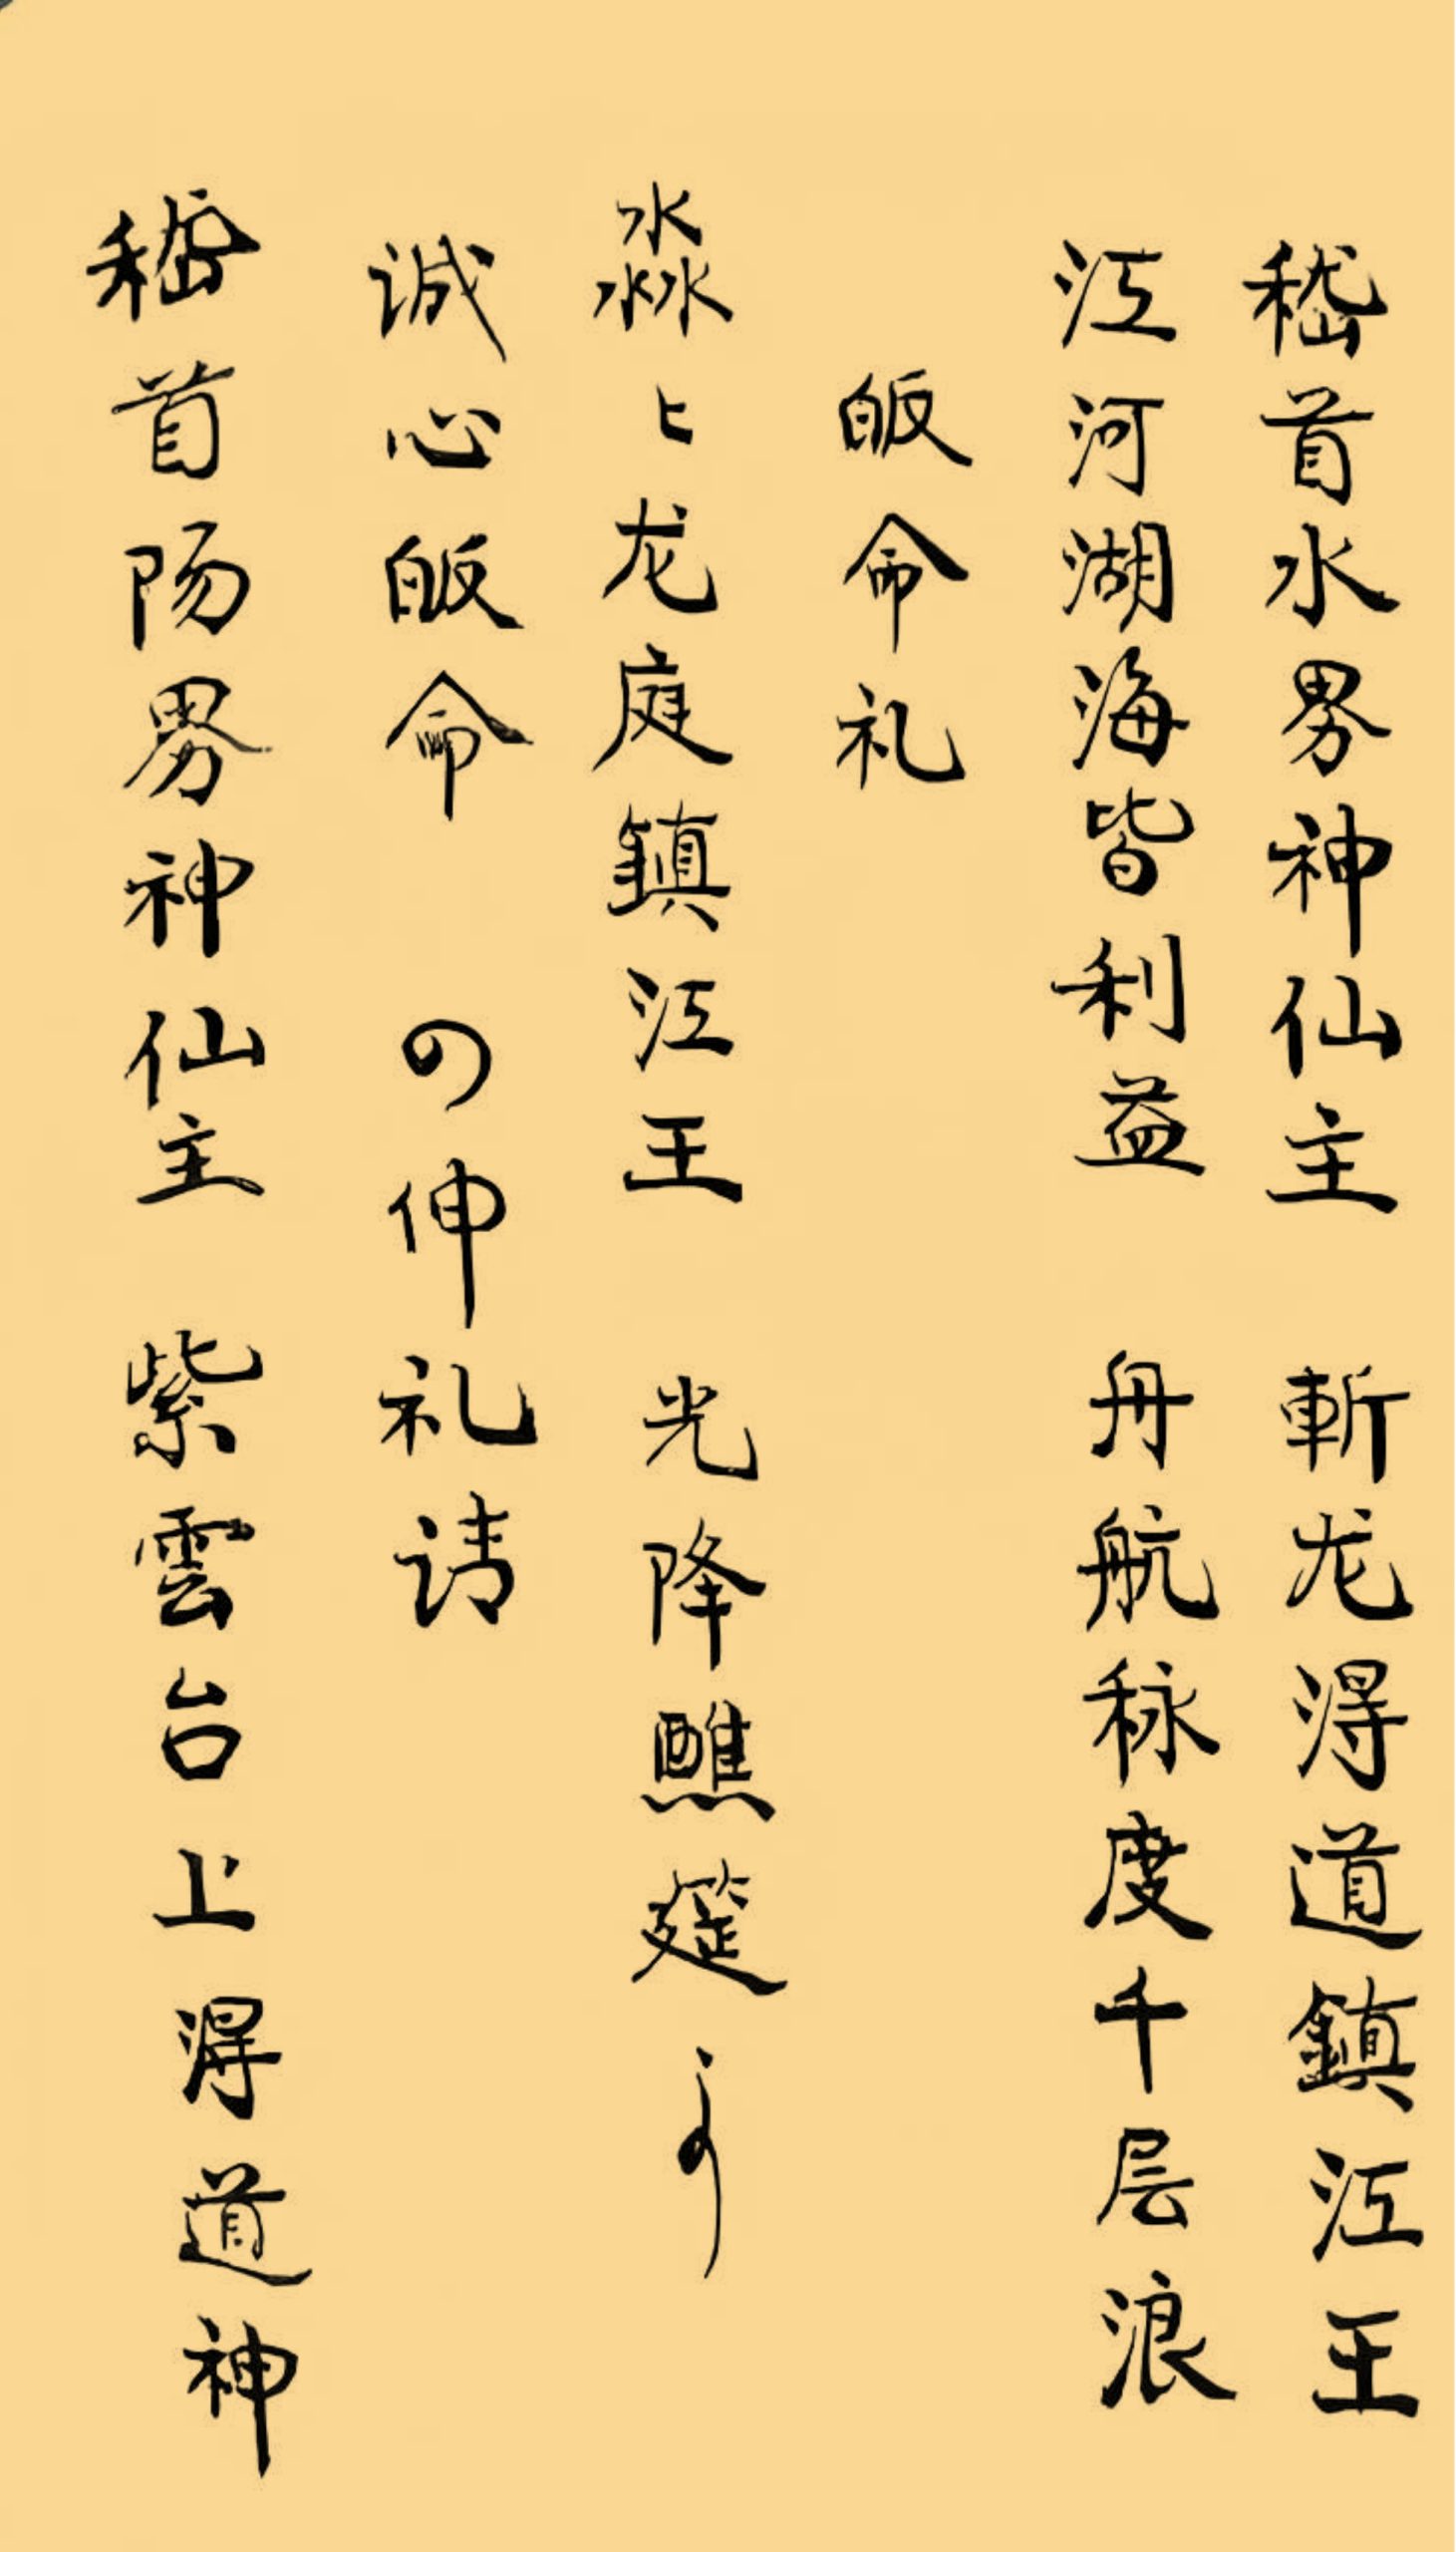 嵇首水界神仙主　斬龙淂道鎮江王
江河湖海皆利益　舟航秢度千层浪
皈命礼
淼〻龙庭鎮江王　光降醮筵
诚心皈命　の伸礼请
嵇首阳界神仙主　紫雲台上淂道神